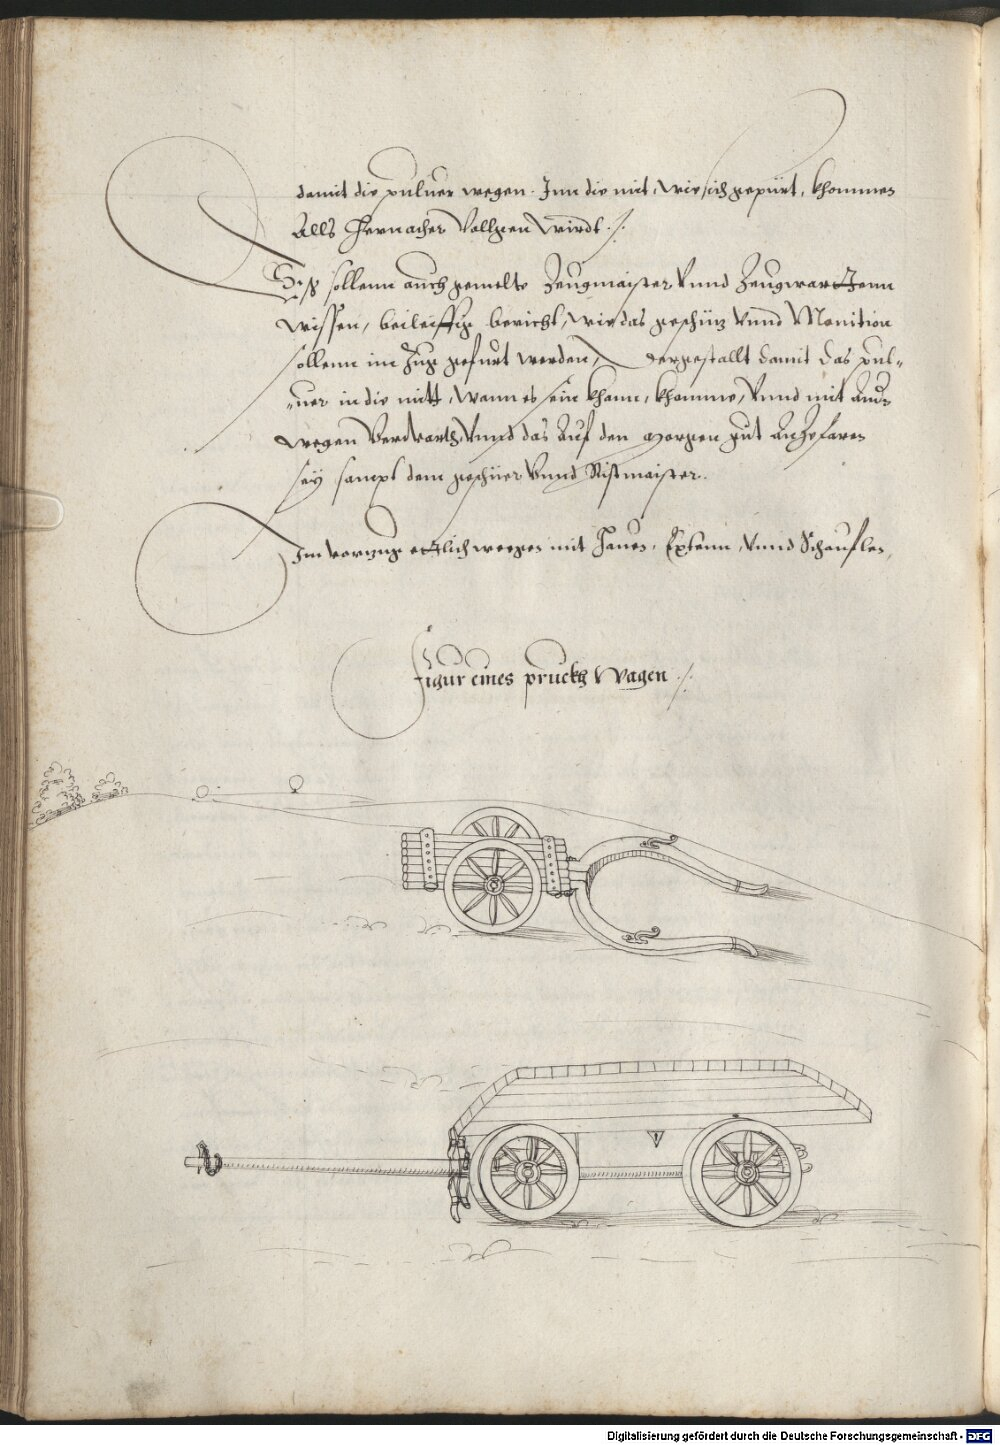 damit die puluer wegen. Inn die mit, wie sich gepürt, khommen
Alls Hernacher Vollgen wirdt ./.
Es sollenn auch gemelte Zeugmaister Vnnd Zeugwartt Jenn
wissen, beileiffig bericht, wie das geschüz Vnnd Monition
sollenn im Zug gefurt werden, dergestallt damit das pul=
=uer in die mitt, wann es sein khann, khomme, Vnnd mit And=
wegen Verwartt, Vnnd das Auf den morgen gut An
sey sampt dem geschier Vnnd Ristmaister.
Im vorzug etzlich wegen mit Hauen, Extenn, Vnnd Schauflen,
Figur eines pruckh Wagen ./.
Digitalisierung gefördert durch die Deutsche Forschungsgemeinschaft - DFG